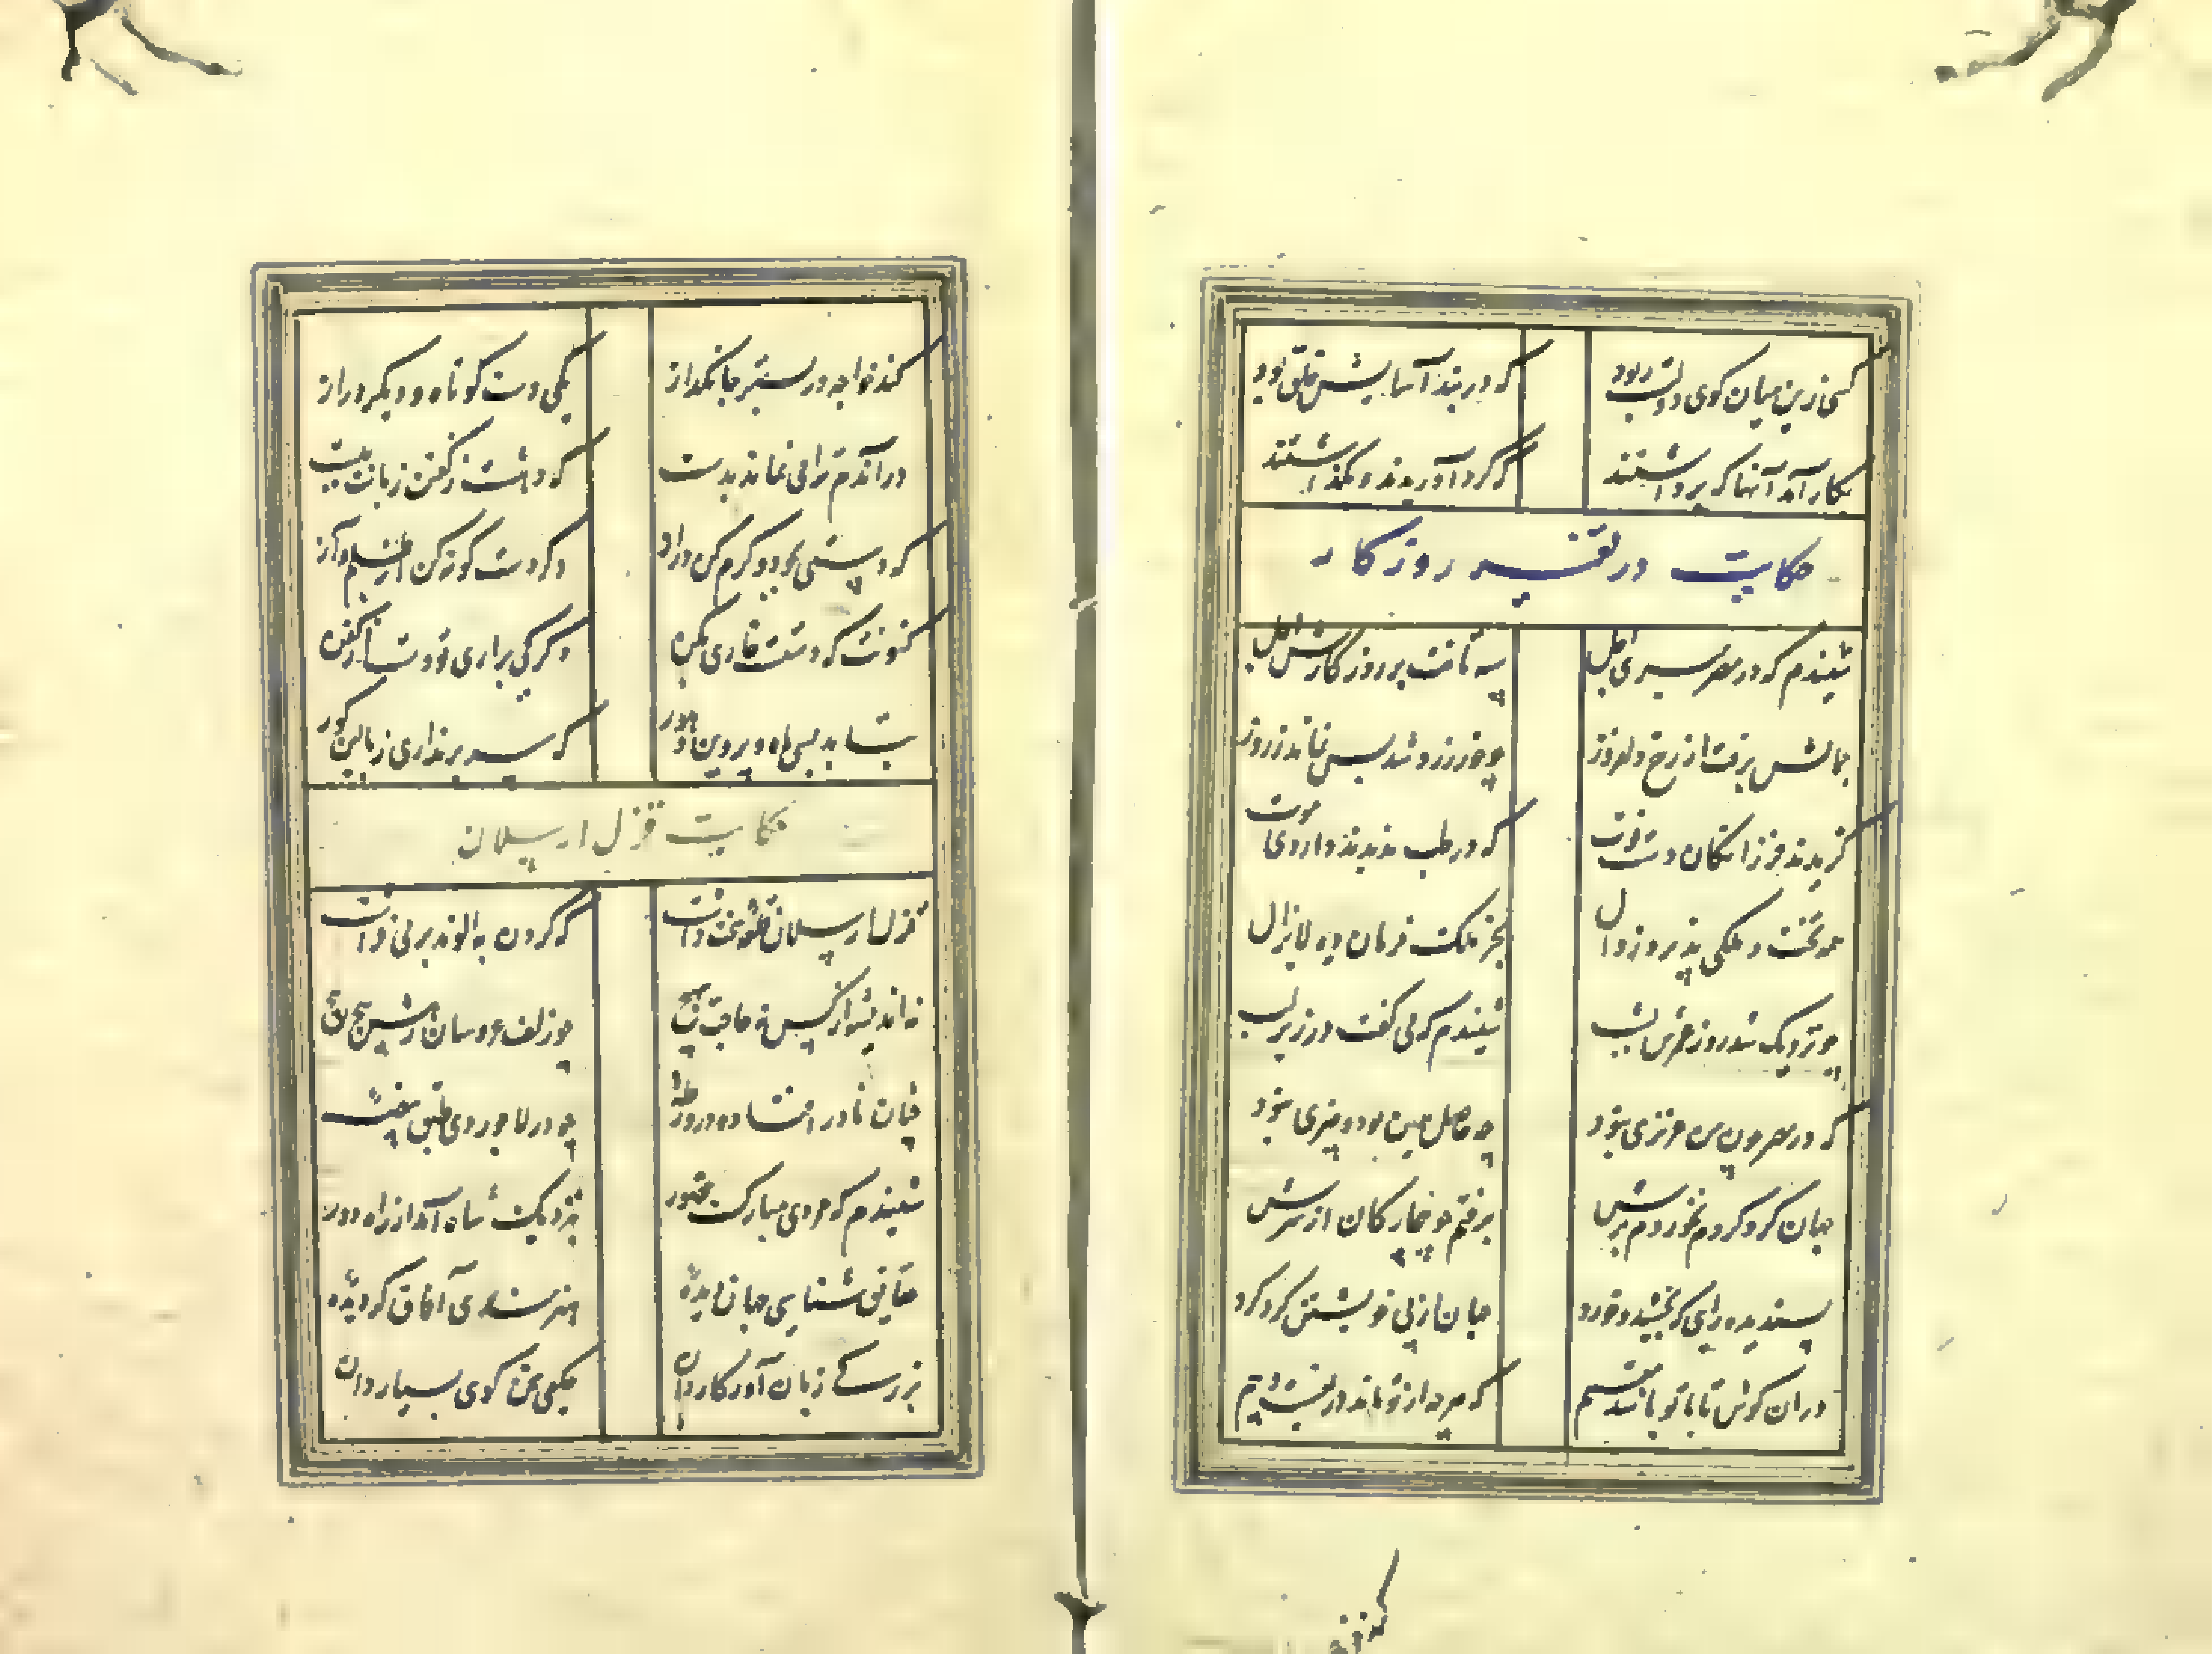 کسی زین میان کوی دولت ربود که در بند آسایش خلق بود
بکار آمد آنها که برداشتند که کرد آوریدند و بکذاشتند
حکایت در تغیر روزکار
شنیدم که در مصر میری اجل سپه تاخت بر روزکارش اجل
جمالش برفت از رخ دلفروز چو خور زرد شد بس نماند ز روز
کزیدند فرزانکان دست فوت که در طب ندیدند داروی موت
همه تخت و ملکی پذیرد زوال بجز ملک فرمان ده لایزال
چو نزدیک شد روز عمرش بشب شنیدم که می کفت در زیر لب
که در مصر چون من عزیزی نبود چه حاصل همین بود و چیزی نبود
جهان کرد کردم نخوردم برش برفتم چو بیچارکان از سرش
پسندیده رایی که بخشید و خورد جهان از پی خویشتن کرد کرد
دران کوش تا با تو باشد مقیم که هرچه از تو ماند دریغست و بیم
کند خواجه
کند خواجه در بستر جانکداز یکی دست کوتاه و دیکر دراز
دراندم ترا می نماید بدست که دهشت ز کفتن زبانت ببست
که دستی بجود و کرم کن دراز دکر دست کوته کن از ظلم و آز
کنونت که دستست خاری بکن دکر کی براری تو دست از کفن
بتابد بسی ماه و پروین و هور که سر برنداری ز بالین کور
حکایت قزل ارسلان
قزل ارسلان قلعهٔ سخت داشت که کردن به الوند بر می فراشت
نه اندیشه از کس نه حاجت بهیچ چو زلف عروسان رهش پیچ پیچ
چنان نادر افتاده در روضهٔ چو در لاجوردی طبق بیضهٔ
شنیدم که مردی مبارک حضور بنزدیک شاه آمد از راه دور
حقایق شناسی جهان دیدهٔ هنرمندی آفاق کردیدهٔ
بزرکی زبان آور کاردان حکیمی سخن کوی بسیار دان